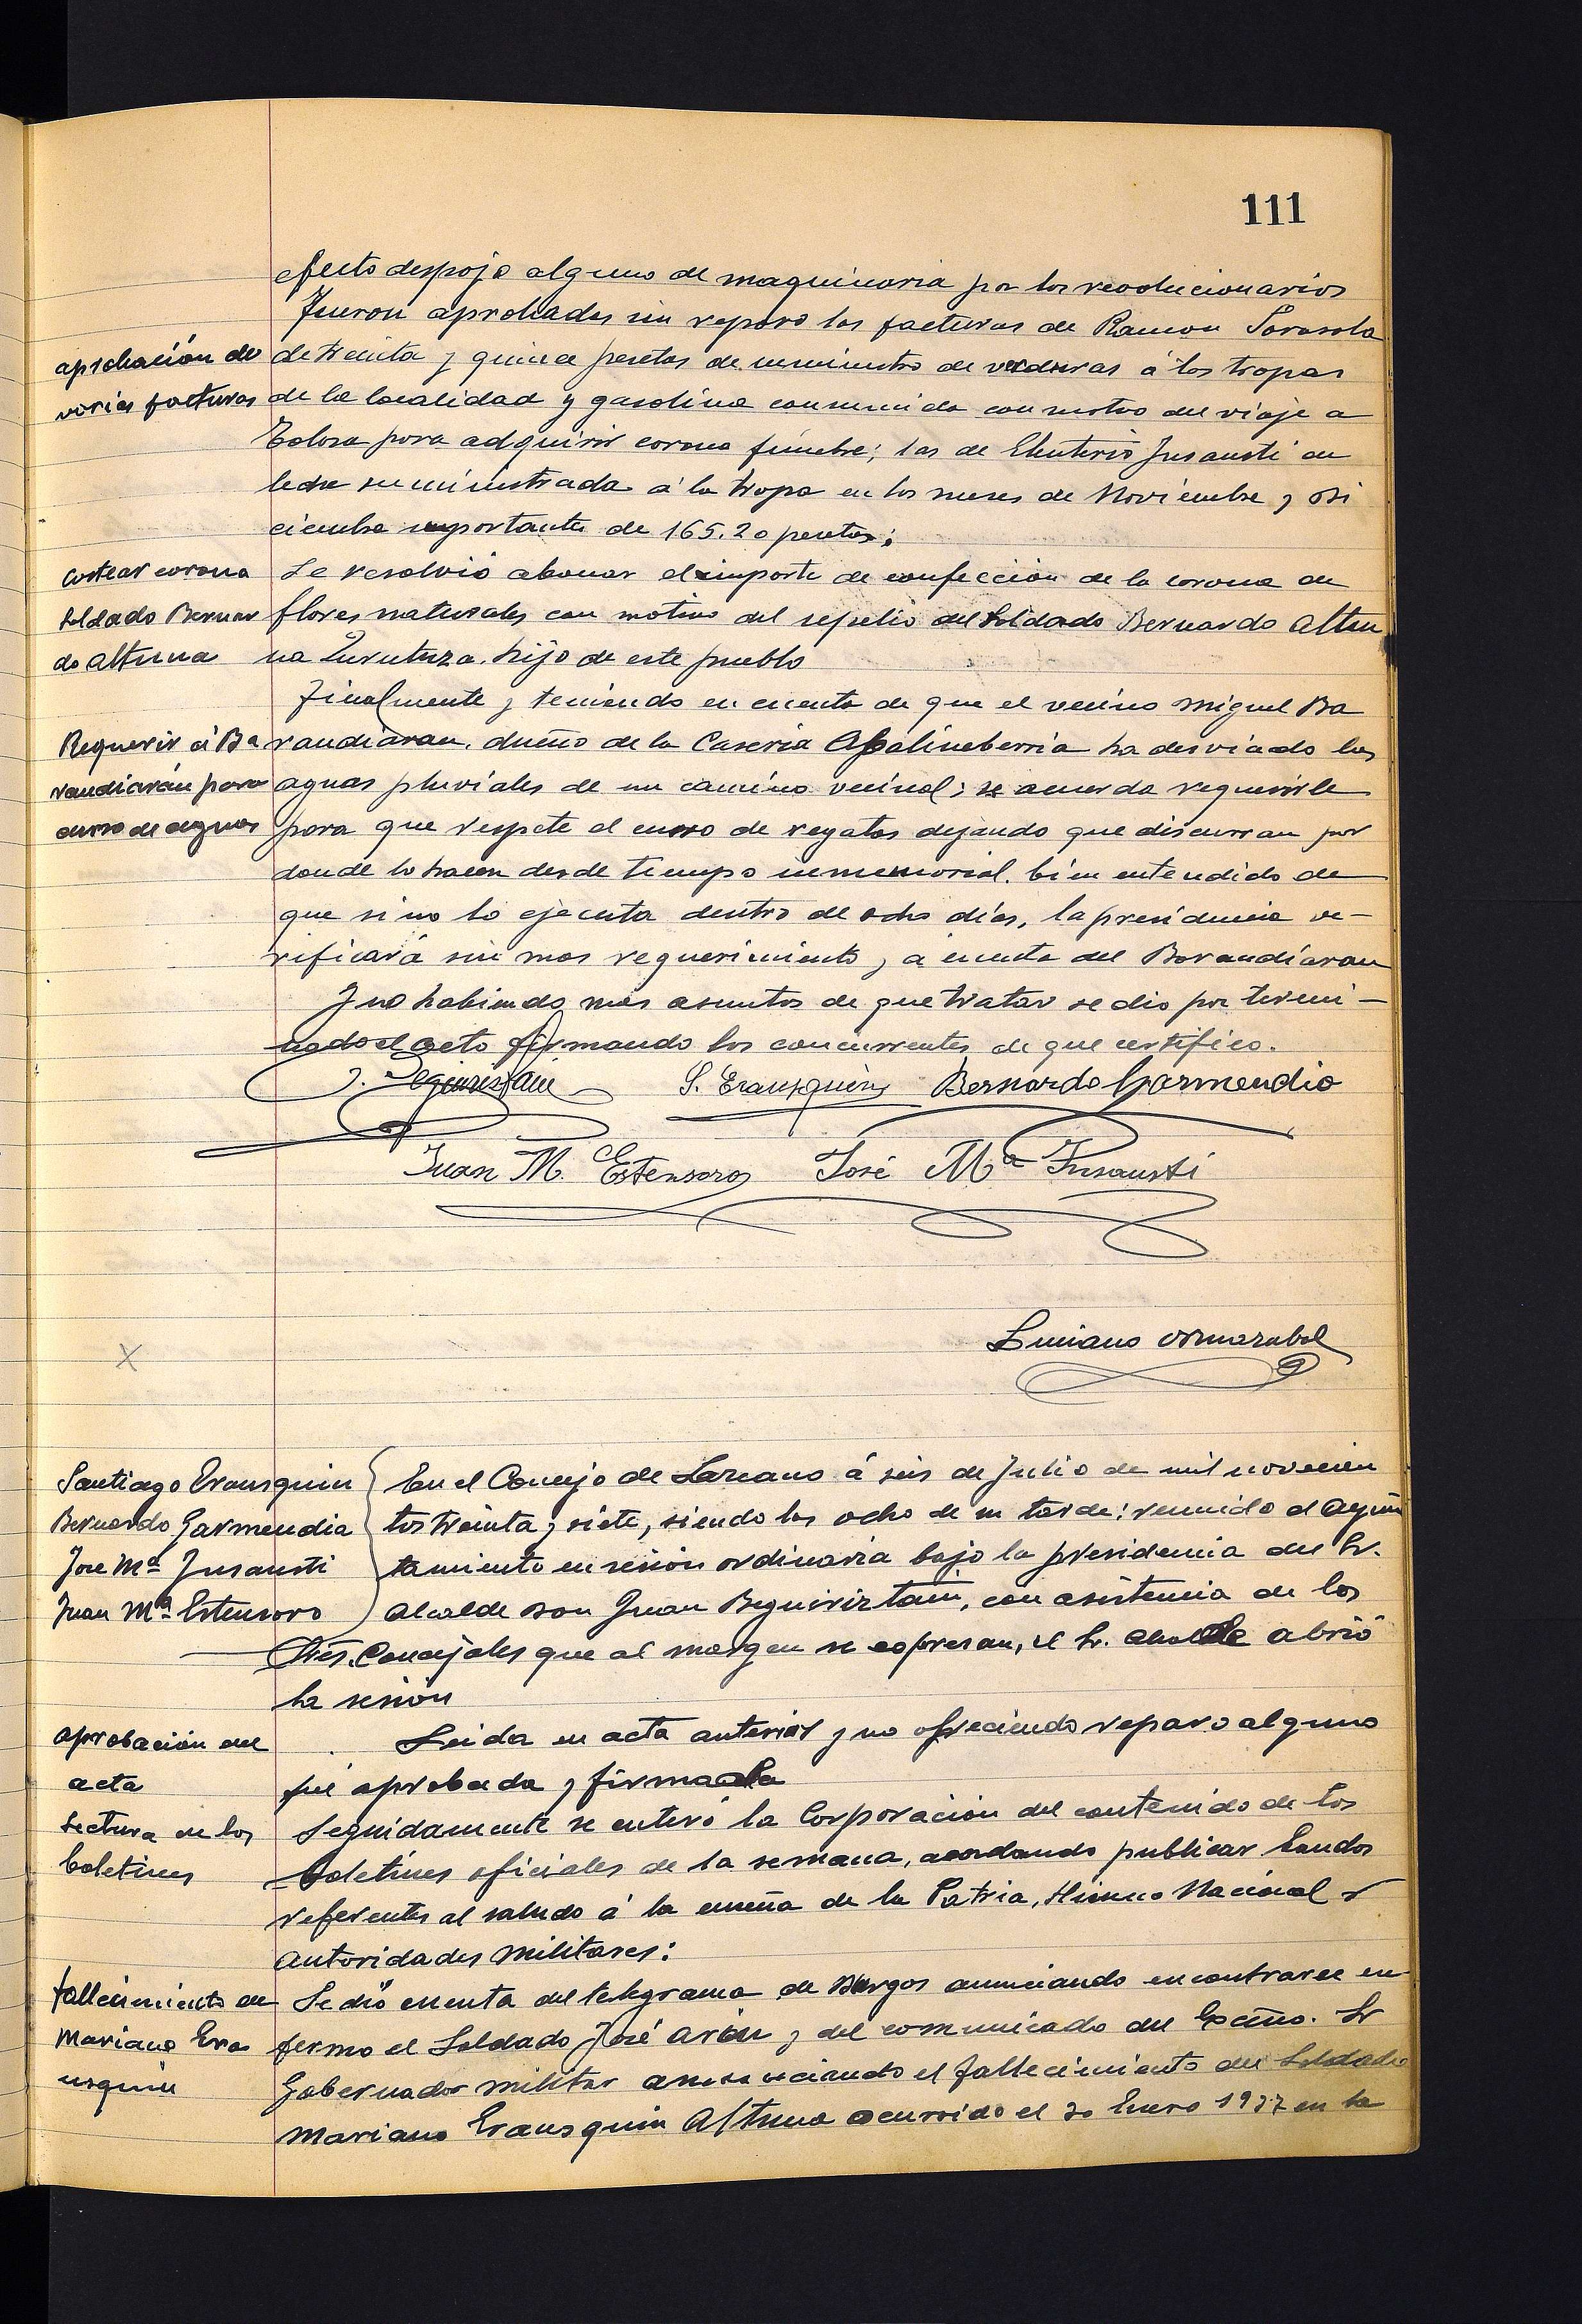 111
efecto despojo alguno de maquinaria por los revolucionarios
Fueron aprobadas sin reparo las facturas de Ramon Sarasola
aprobación de
varias facturas
de treinta y quince pesetas de suministro de verduras á las tropas
de la localidad y gasolina consumida con motivo del viaje a
Tolosa para adquirir corona fúnebre; las de Eleuterio Insausti de
leche suministrada á la tropa en los meses de Noviembre y Di
ciembre importante de 165.20 pesetas;
Costear corona
soldado Bernar
do Altuna
Se resolvió abonar el importe de confección de la corona de
flores naturales con motivo del sepelio del Soldado Bernardo Altu
na Zurutuza, hijo de este pueblo
Finalmente y teniendo en cuenta de que el vecino Miguel Ba
Requerir á Ba
randiarán para
curso de aguas
randiaran, dueño de la Caseria Apalineberria ha desviado las
aguas pluviales de un camino vecinal; se acuerda requerirle
para que respete el curso de regatas dejando que discurran por
donde lo hacen desde tiempo inmemorial, bien entendido de
que si no lo ejecuta dentro de ocho días, la presidencia ve-
rificará sin mas requerimiento y a cuenta del Barandiaran
Y no habiendo mas asuntos de que tratar se dio por termi-
nado el acto firmando los concurrentes de que certifico.
S. Erausquin Bernardo Garmendia
Juan M. Estensoro José Mª Insausti
Luciano Ormazabal
Santiago Erausquin
Bernardo Garmendia
Jose Mª Insausti
Juan Mª Estensoro
En el Concejo de Lazcano á seis de Julio de mil novecien
tos treinta y siete, siendo las ocho de su tarde: reunido el Ayun
tamiento en sesión ordinaria bajo la presidencia del Sr.
Alcalde Don Juan Beguiriztain, con asistencia de los
Sres. Concejales que al margen se expresan, el Sr. Alcalde abrió
la sesión
aprobación del
acta
Leida su acta anterior y no ofreciendo reparo alguno
fué aprobada y firmada
Lectura de los
boletines
Seguidamente se enteró la Corporación del contenido de los
boletines oficiales de la semana, acordando publicar bandos
referentes al saludo á la enseña de la Patria, Himno Nacional y
autoridades militares:
fallecimiento de
Mariano Era
usquin
Se dió cuenta del telegrama de Burgos anunciando encontrarse en
fermo el Soldado José Arin y del comunicado del Excmo. Sr
Gobernador militar anunciando el fallecimiento del Soldado
Mariano Erausquin Altuna ocurrido el 30 Enero 1937 en la